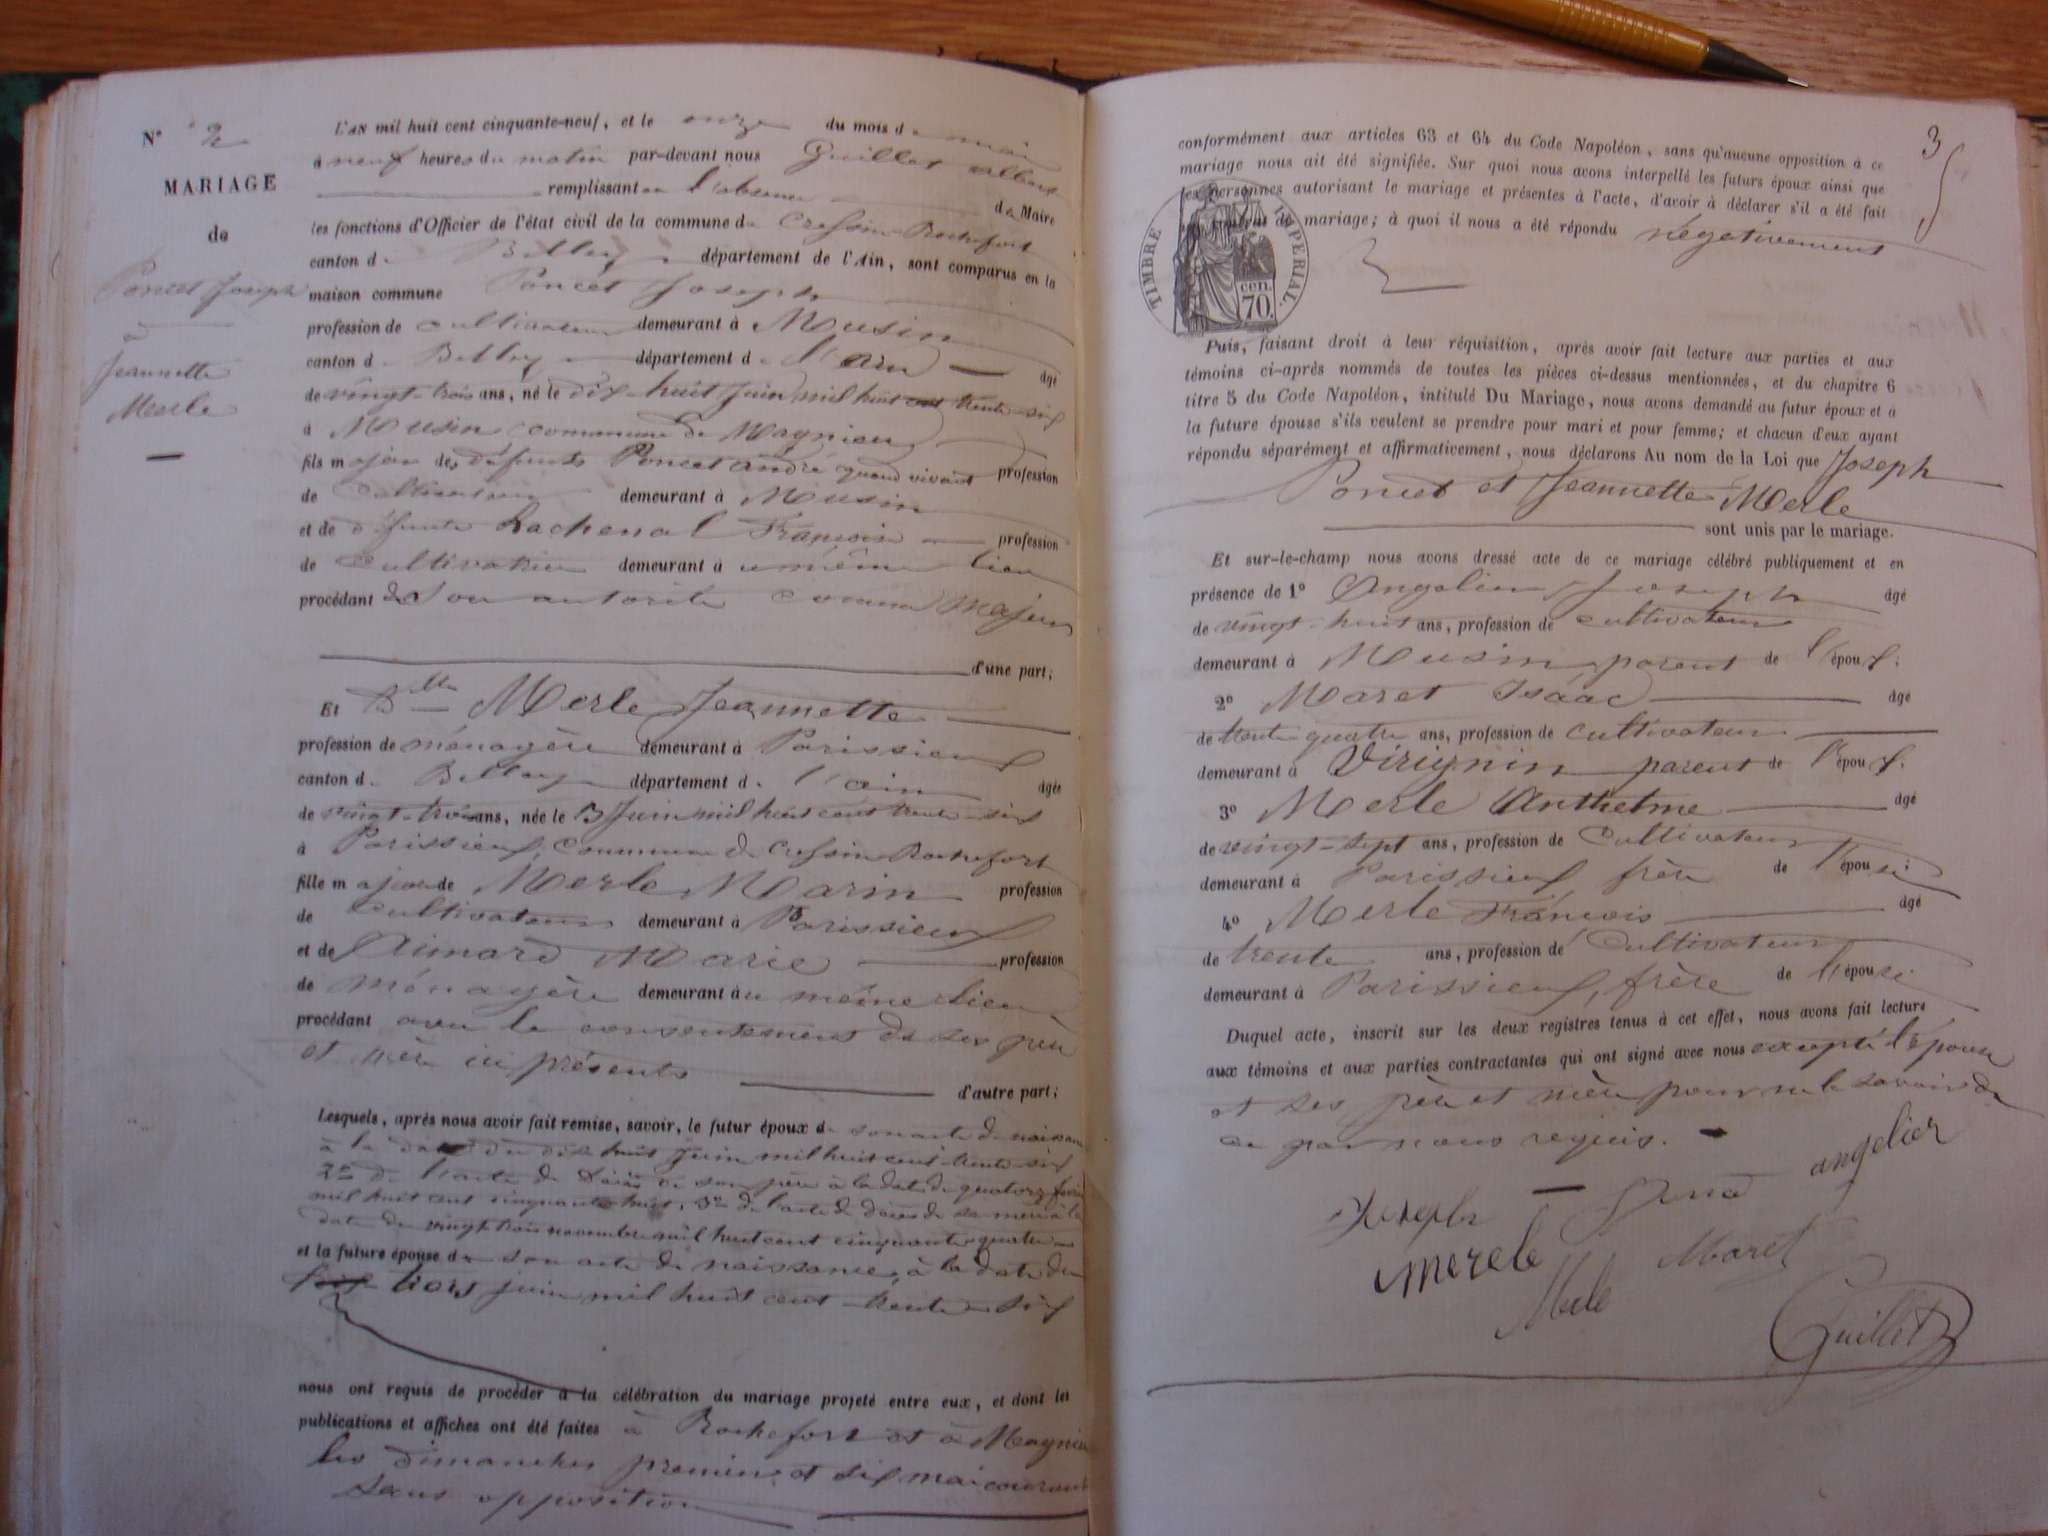 N° 2
MARIAGE
de
Poncet Joseph
à
Jeannette
Merle
L'AN mil huit cent cinquante-neuf, et le onze du mois de mai
à neuf heures du matin par-devant nous Guillet Albert
remplissant en l'absence du Maire
les fonctions d'Officier de l'état civil de la commune de Cressin-Rochefort
canton de Belley département de l'Ain, sont comparus en la
maison commune Poncet Joseph
profession de cultivateur demeurant à Musin
canton de Belley département de l'ain âgé
de vingt-trois ans, né le dix-huit Juin mil huit cent trente-six
à Musin commune de Magnieu
fils majeur des défunts Poncet André quand vivait profession
de cultivateur demeurant à Musin
et de défunte Rachenal Françoise profession
de cultivatrice demeurant au même lieu
procédant de son autorité comme majeur
d'une part;
Et Dlle Merle Jeannette
profession de ménagère demeurant à Parissieux
canton de Belley département de l'ain âgée
de vingt-trois ans, née le 3 Juin mil huit cent trente-six
à Parissieux, commune de Cressin-Rochefort
fille majeure de Merle Marin profession
de cultivateur demeurant à Parissieux
et de Aimard Marie profession
de ménagère demeurant au même lieu
procédant avec le consentement de ses père
et mère ici présents d'autre part;
Lesquels, après nous avoir fait remise, savoir, le futur époux de son acte de naissance
à la date du dix huit Juin mil huit cent trente-six
2° de l'acte de Décès de son père à la date du quatorze
mil huit cent cinquante huit, 3° de l'acte de décès de sa mère à la
date du vingt trois novembre mil huit cent cinquante-quatre
et la future épouse de son acte de naissance, à la date du
trois juin mil huit cent trente-six
nous ont requis de procéder à la célébration du mariage projeté entre eux, et dont les
publications et affiches ont été faites à Rochefort et à Magnieu
les dimanches premier et six mai courant
sans opposition
3
conformément aux articles 63 et 64 du Code Napoléon, sans qu'aucune opposition à ce
mariage nous ait été signifiée. Sur quoi nous avons interpellé les futurs époux ainsi que
les personnes autorisant le mariage et présentes à l'acte, d'avoir à déclarer s'il a été fait
contrat de mariage; à quoi il nous a été répondu négativement
TIMBRE IMPERIAL.
70. cen.
Puis, faisant droit à leur réquisition, après avoir fait lecture aux parties et aux
témoins ci-après nommés de toutes les pièces ci-dessus mentionnées, et du chapitre 6
titre 5 du Code Napoléon, intitulé Du Mariage, nous avons demandé au futur époux et à
la future épouse s'ils veulent se prendre pour mari et pour femme; et chacun d'eux ayant
répondu séparément et affirmativement, nous déclarons Au nom de la Loi que Joseph
Poncet et Jeannette Merle
sont unis par le mariage.
Et sur-le-champ nous avons dressé acte de ce mariage célébré publiquement et en
présence de 1° Angelier Joseph âgé
de vingt-huit ans, profession de cultivateur
demeurant à Musin parent de l'époux;
2° Maret Isâac âgé
de trente quatre ans, profession de cultivateur
demeurant à Virignin parent de l'époux.
3° Merle Anthelme âgé
de vingt-sept ans, profession de Cultivateur
demeurant à Parissieux frère de l'épouse;
4° Merle François âgé
de trente ans, profession de Cultivateur
demeurant à Parissieux, frère de l'épouse
Duquel acte, inscrit sur les deux registres tenus à cet effet, nous avons fait lecture
aux témoins et aux parties contractantes qui ont signé avec nous excepté l'épouse
et ses père et mère pour ne le savoir de
ce par nous requis.
Joseph angelier
merele Maret
Merle
Guillet